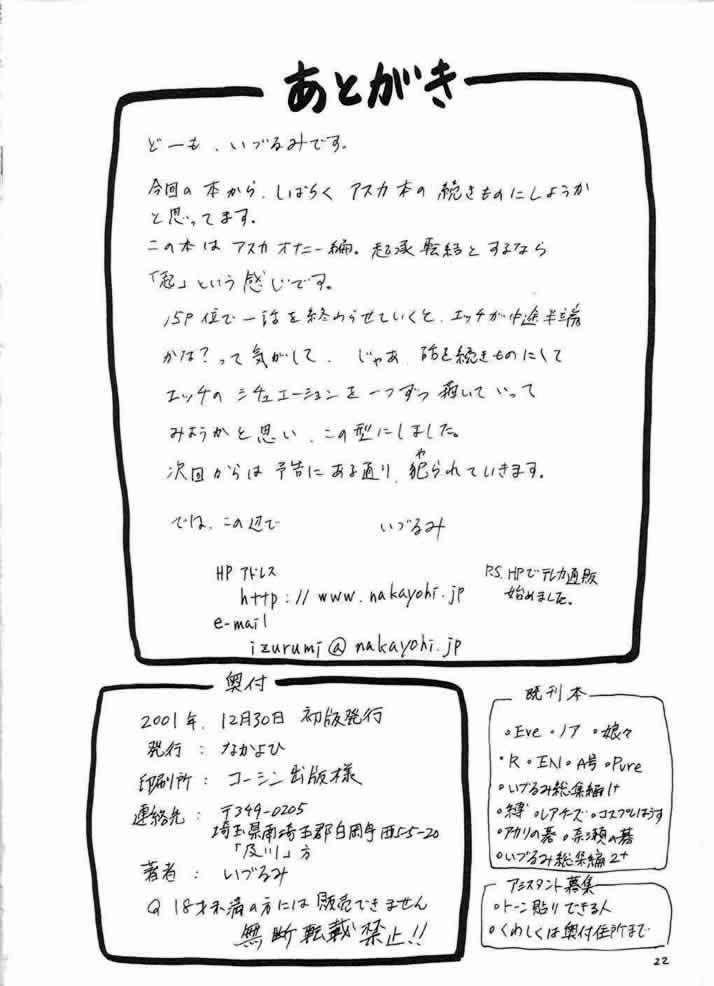 あとがき
どーも、いづるみです。
今回の本から、しばらく アスカ本の 続きものにしようか
と思ってます。
この本は アスカ オナニー編。起承転結とするなら
「起」という感じです。
15P位で一話を終わらせていくと、エッチが中途半端
かな?って気がして、じゃあ、話を続きものにして
エッチの シチュエーションを一つずつ 描いていって
みようかと思い、この型にしました。
次回からは 予告にある通り、犯られていきます。
や
では、この辺で いづるみ
HP アドレス
http://www.nakayohi.jp
P.S. HPでテレカ通販
始めました。
e-mail
izurumi@nakayohi.jp
奥付
2001年、12月30日 初版発行
発行 : なかよひ
印刷所 : コーシン出版様
連絡先 : 〒349-0205
埼玉県南埼玉郡白岡町西5-5-20
「及川」方
著者 : いづるみ
18才未満の方には 販売できません
無断転載禁止!!
既刊本
・Eve ・ノア ・娘々
・R ・EN ・A号 ・Pure
・いづるみ総集編1+
・縛 ・レアチーズ ・コスプレはうす
・アカリの碁 ・奈瀬の碁
・いづるみ総集編2+
アシスタント募集
・トーン貼りできる人
・くわしくは奥付住所まで
22